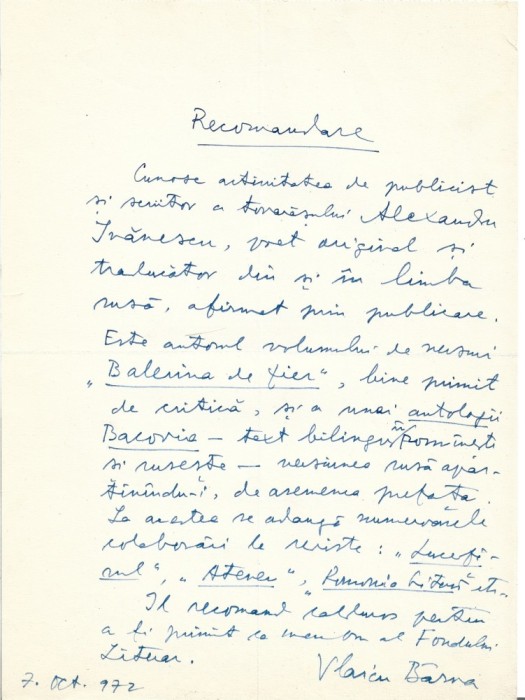 Recomandare
Cunosc activitatea de publicist
și scriitor a tovarășului Alexandru
Ivănescu, poet original și
traducător din și în limba
rusă, afirmat prin publicare.
Este autorul volumului de versuri
„Balerina de fier", bine primit
de critică, și a unei antologii
Bacovia – text bilingv în romînești
și rusește – versiunea rusă apar-
ținîndu-i, de asemenea prefața.
La acestea se adaugă numeroasele
colaborări la reviste: „Luceafă-
rul", „Ateneu", „Romania Literă etc.
Il recomand călduros pentru
a fi primit ca membru al Fondului
Literar.
Vlaicu Bârna
7. Oct. 972